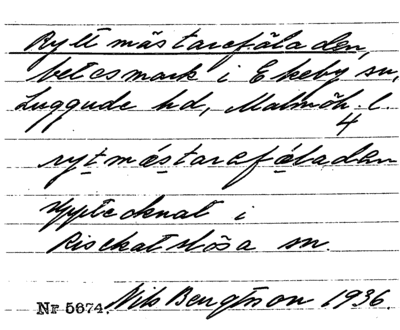 Ryttmästarefäladen,
betesmark i Ekeby sn,
Luggude hd, Malmöh. l.
4
rytmästarefäladen
Upptecknat i
Risekatslösa sn.
Nr 5674. Nils Bengtsson 1936.